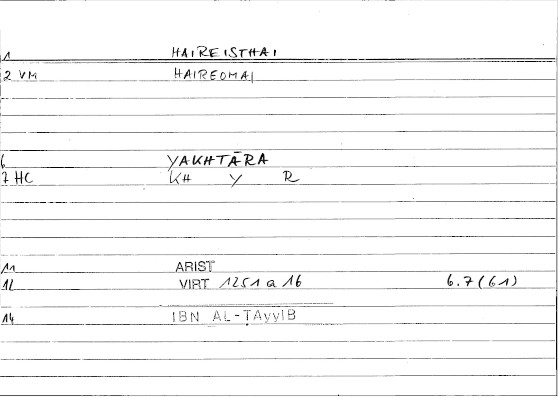 1 HAIREISTHAI
2 VM HAIREOMAI
6 YAKHTĀRA
7 HC KH Y R
11 ARIST
12 VIRT 1251 a 16 6.7 (61)
14 IBN AL-TAyyIB